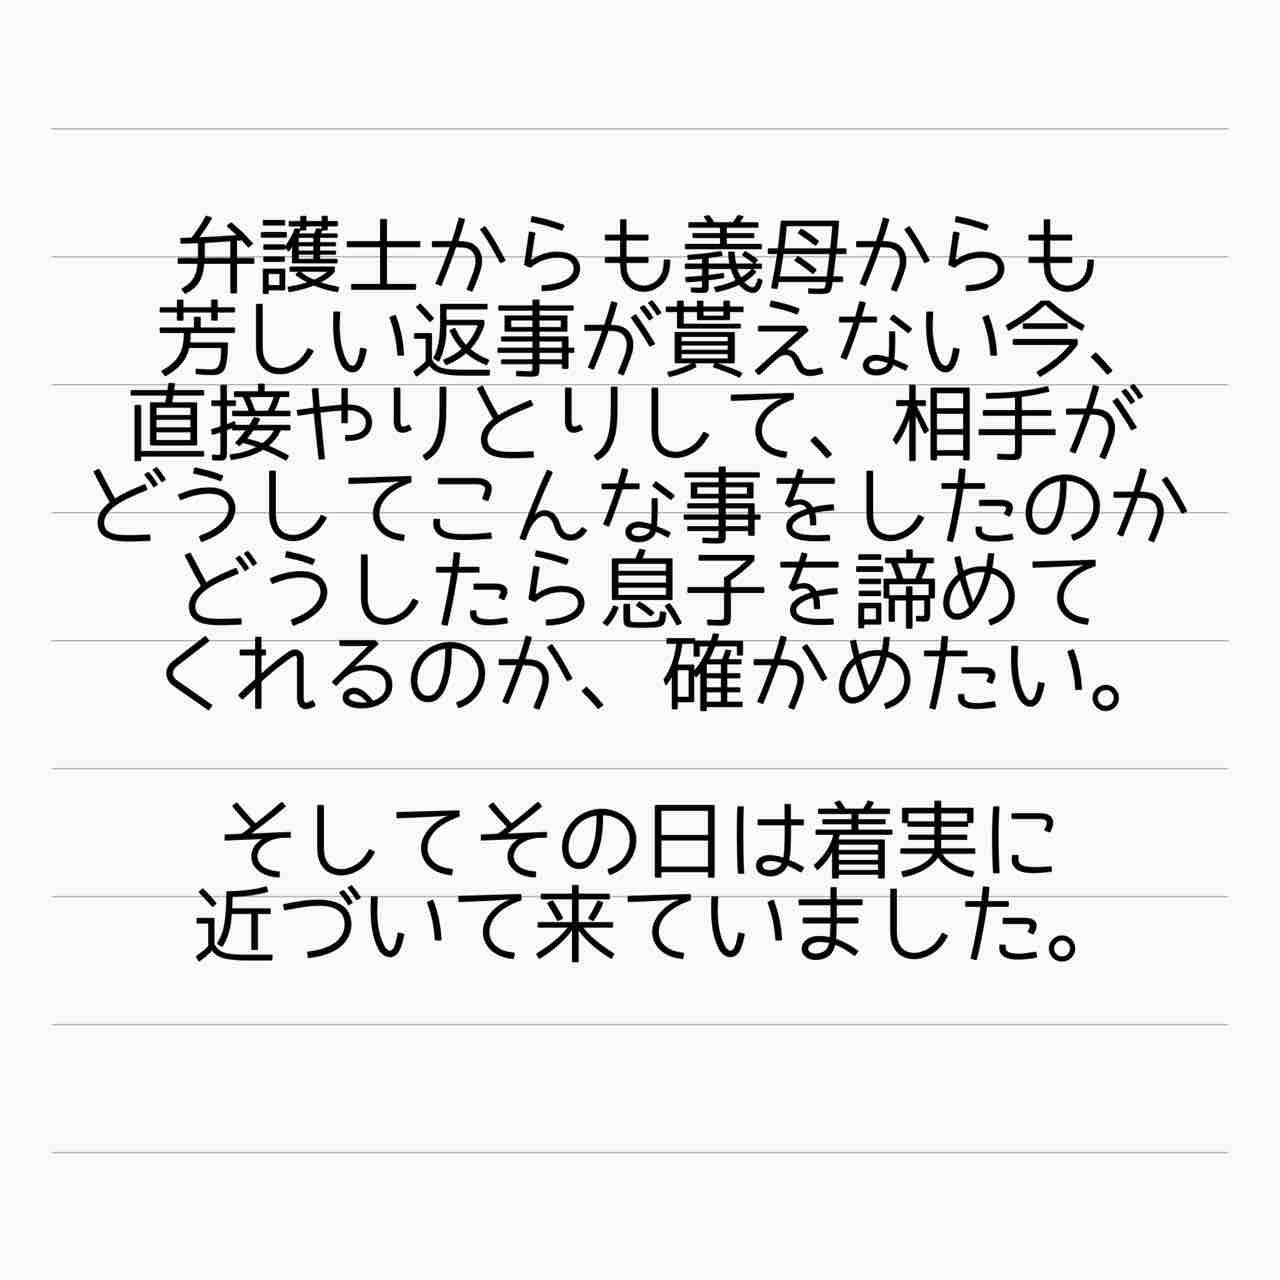 弁護士からも義母からも
芳しい返事が貰えない今、
直接やりとりして、相手が
どうしてこんな事をしたのか
どうしたら息子を諦めて
くれるのか、確かめたい。
そしてその日は着実に
近づいて来ていました。